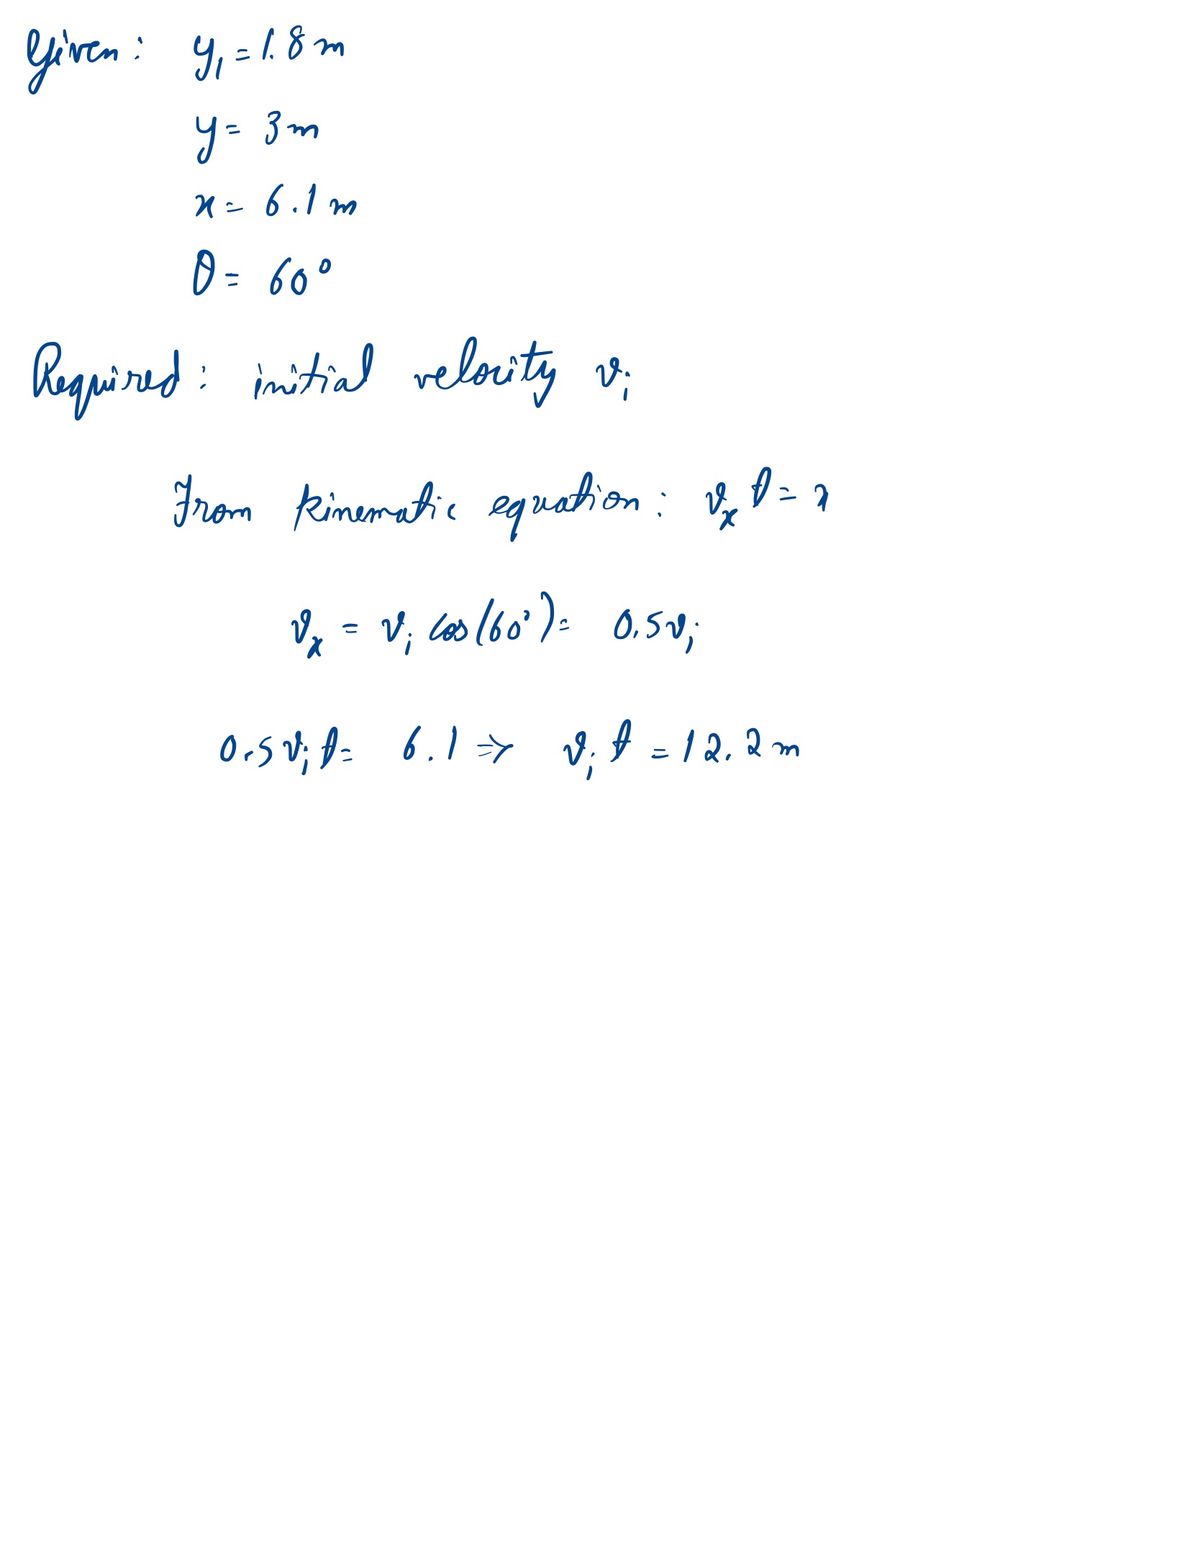 Given: y₁ = 1.8 m
y = 3 m
x = 6.1 m
θ = 60°
Required: initial velocity vᵢ
From kinematic equation: vₓ t = x
vₓ = vᵢ cos(60°) = 0.5vᵢ
0.5 vᵢ t = 6.1 ⇒ vᵢ t = 12.2 m